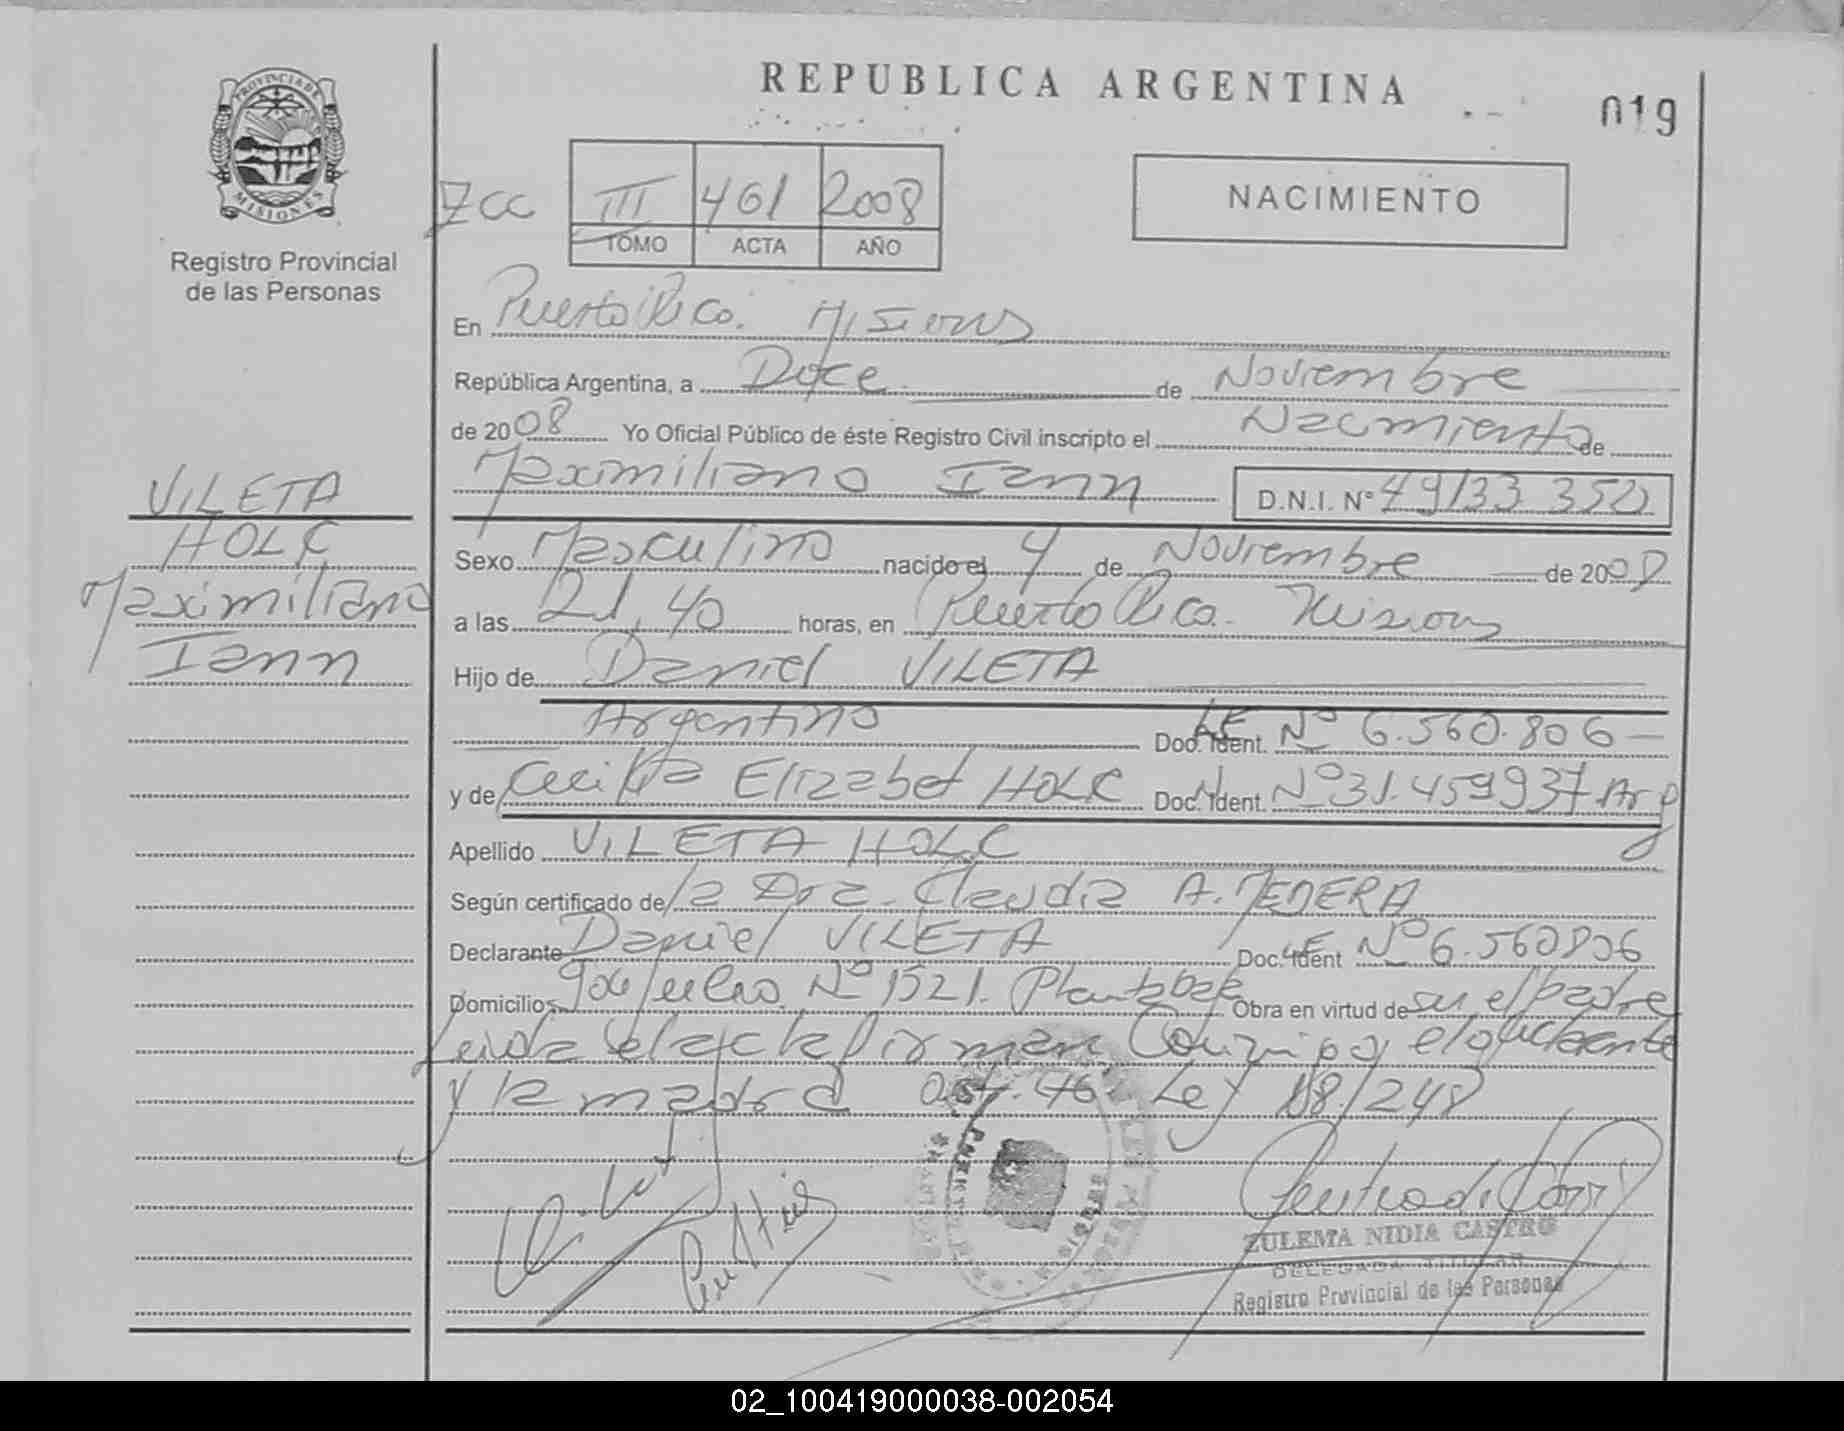 REPUBLICA ARGENTINA
019
PROVINCIA DE
MISIONES
Registro Provincial
de las Personas
III 461 2008
TOMO ACTA AÑO
NACIMIENTO
En Puerto Rico. Misiones
República Argentina, a Doce de Noviembre
de 2008 Yo Oficial Público de éste Registro Civil inscripto el Nacimiento de
Maximiliano Iann D.N.I. N° 49133 350
VILETA
HOLC
Maximiliano
Iann
Sexo Masculino nacido el 4 de Noviembre de 2008
a las 21,40 horas, en Puerto Rico. Misiones
Hijo de Daniel VILETA
Argentino Doc. Ident. LE Nº 6.560.806
y de Cecilia Elizabet HOLC Doc. Ident. Nº 31.459937 Arg
Apellido VILETA HOLC
Según certificado de la Dra. Claudia A. MEDERA
Declarante Daniel VILETA Doc. Ident LE Nº 6.560806
Domicilio 9 de Julio Nº 1521. Obra en virtud de ser el padre
Leida el acta firman Conmigo el declarante
y la madre art. 46 Ley 18/248
ZULEMA NIDIA CASTRO
DELEGADA TITULAR
Registro Provincial de las Personas
02_100419000038-002054